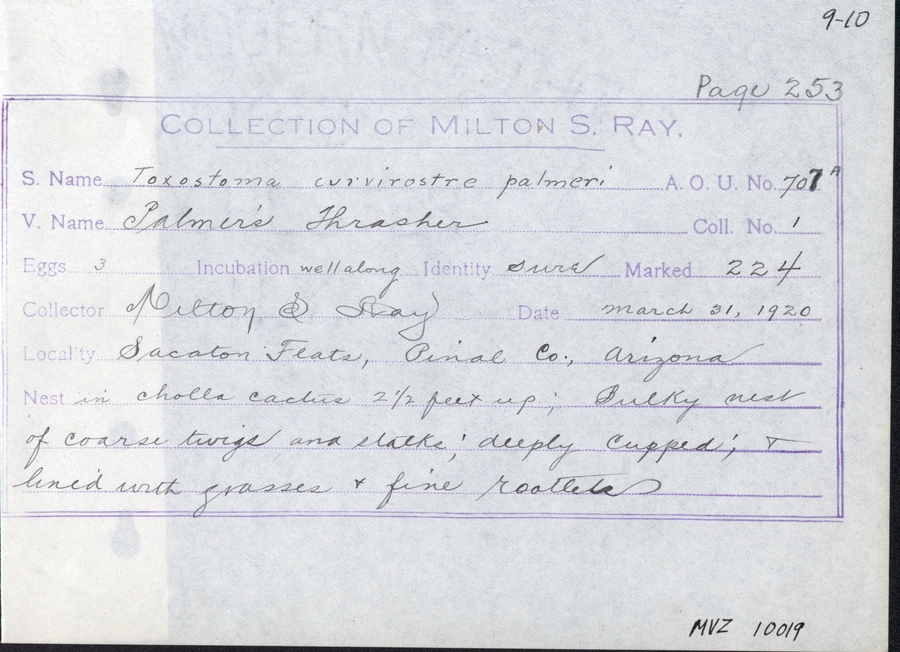 9-10
Page 253
COLLECTION OF MILTON S. RAY.
S. Name Toxostoma curvirostre palmeri A. O. U. No. 707A
V. Name Palmer's Thrasher Coll. No. 1
Eggs 3 Incubation well along Identity sure Marked 224
Collector Milton S Ray Date march 31, 1920
Locality Sacaton Flats, Pinal Co., Arizona
Nest in cholla cactus 2 1/2 feet up; Bulky nest
of coarse twigs and stalks; deeply cupped; +
lined with grasses + fine rootlets
MVZ 10019